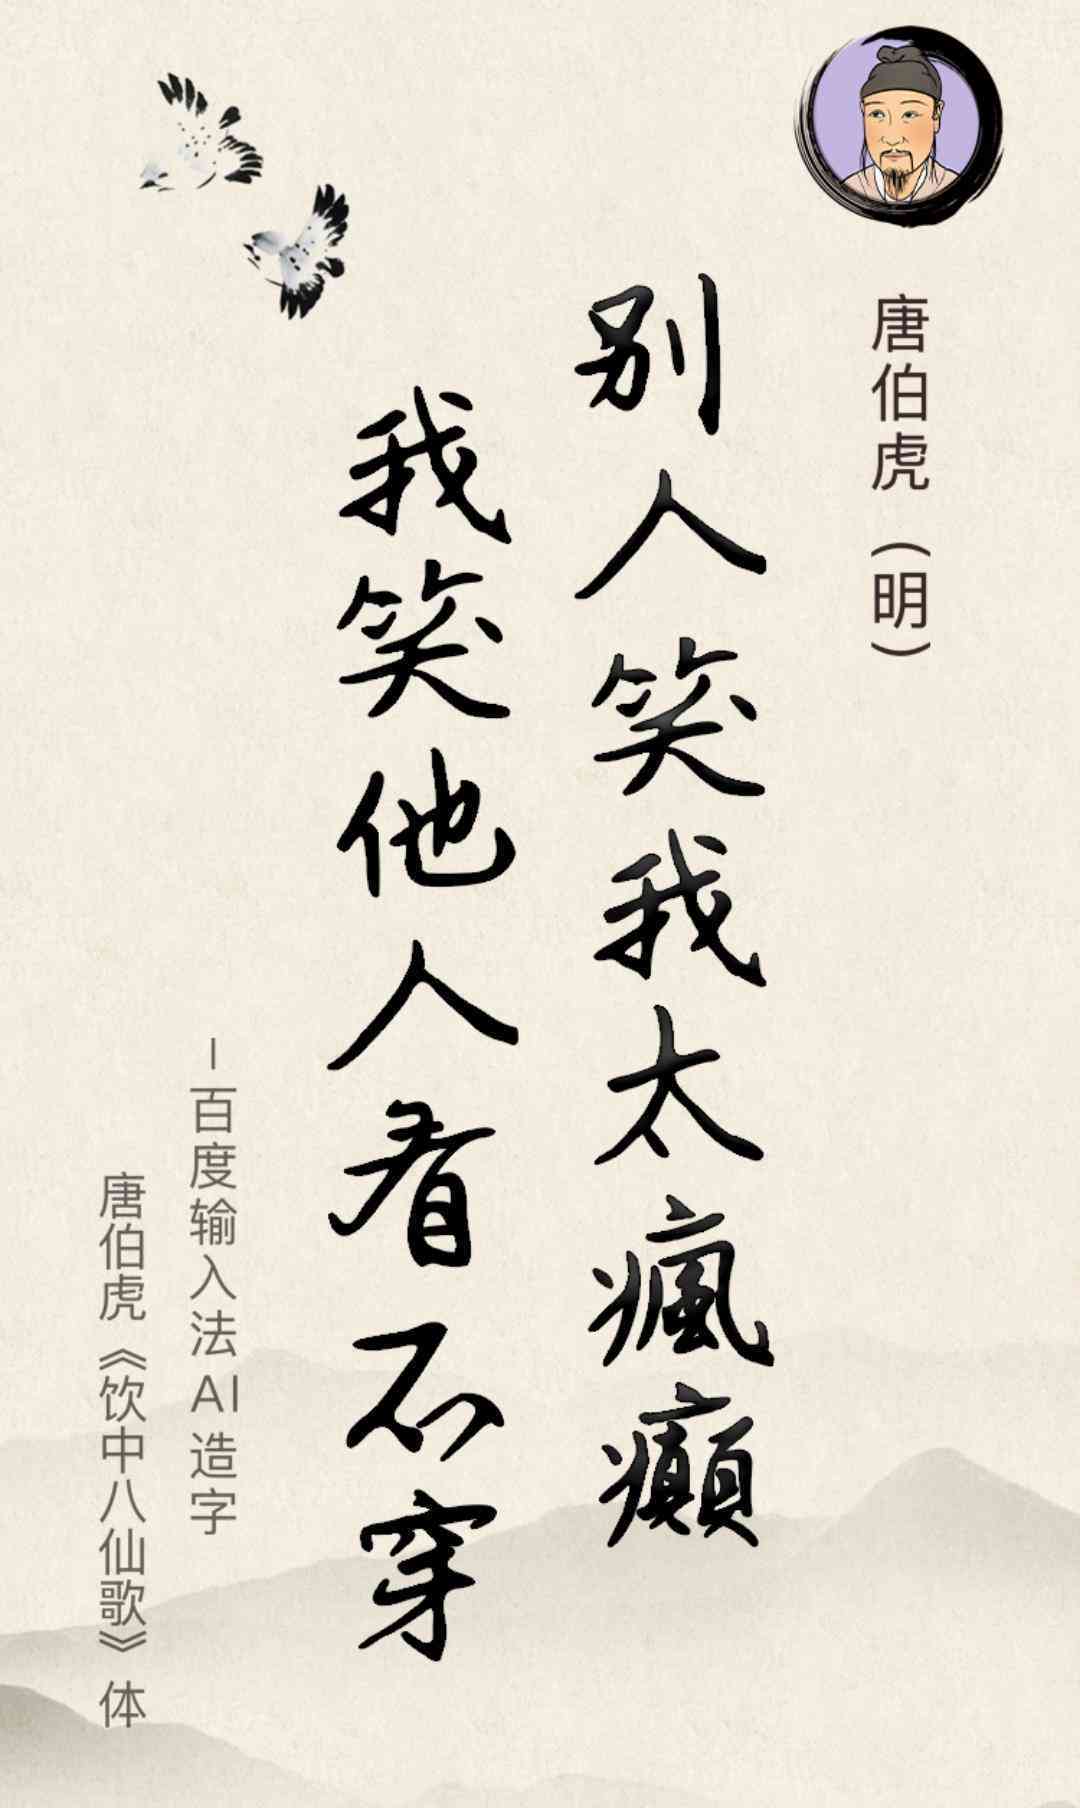 唐伯虎（明）
别人笑我太瘋癲
我笑他人看不穿
－百度输入法 AI 造字
唐伯虎《饮中八仙歌》体